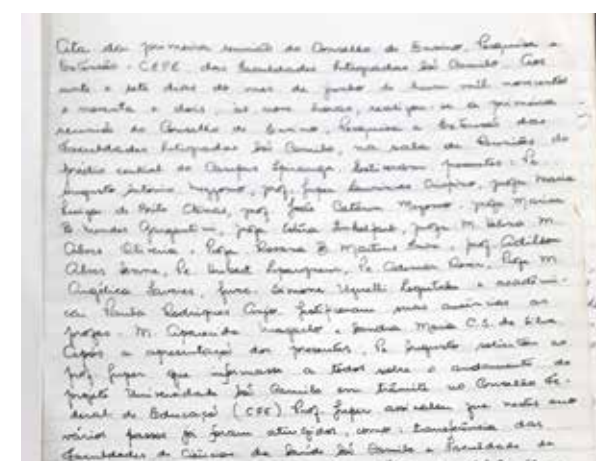 Ata da primeira reunião do Conselho de Ensino, Pesquisa e
Extensão - CEPE, das Faculdades Integradas São Camilo. Aos
vinte e sete dias do mes de junho de hum mil novecentos
e noventa e dois, às nove horas, realizou-se a primeira
reunião do Conselho de Ensino, Pesquisa e Extensão das
Faculdades Integradas São Camilo, na sala de Reuniões do
prédio central do Campus Ipiranga. Estiveram presentes: Pe.
Augusto Antonio Mezzomo, prof. maria
de Brito prof. João Catarin Mezomo, profa Marisa
profa M.
Alves Oliveira, Profa. Rosana B. Martins prof. Adilson
Alves Pe. Pe. Profa M.
Angélica Tavares, func. Simone e acadêmi-
ca Paula Rodrigues justificaram suas ausências as
profas. M. Aparecida e Sandra Maria C.S. da Silva.
Após a apresentação dos presentes, Pe. Augusto solicitou ao
prof. que informasse a todos sobre o andamento do
projeto Universidade São Camilo em trâmite no Conselho Fe-
deral de Educação (CFE). Prof. assinalou que neste ano
vários passos já foram atingidos, como: transferência das
Faculdades de Ciências da Saúde São Camilo e Faculdade de